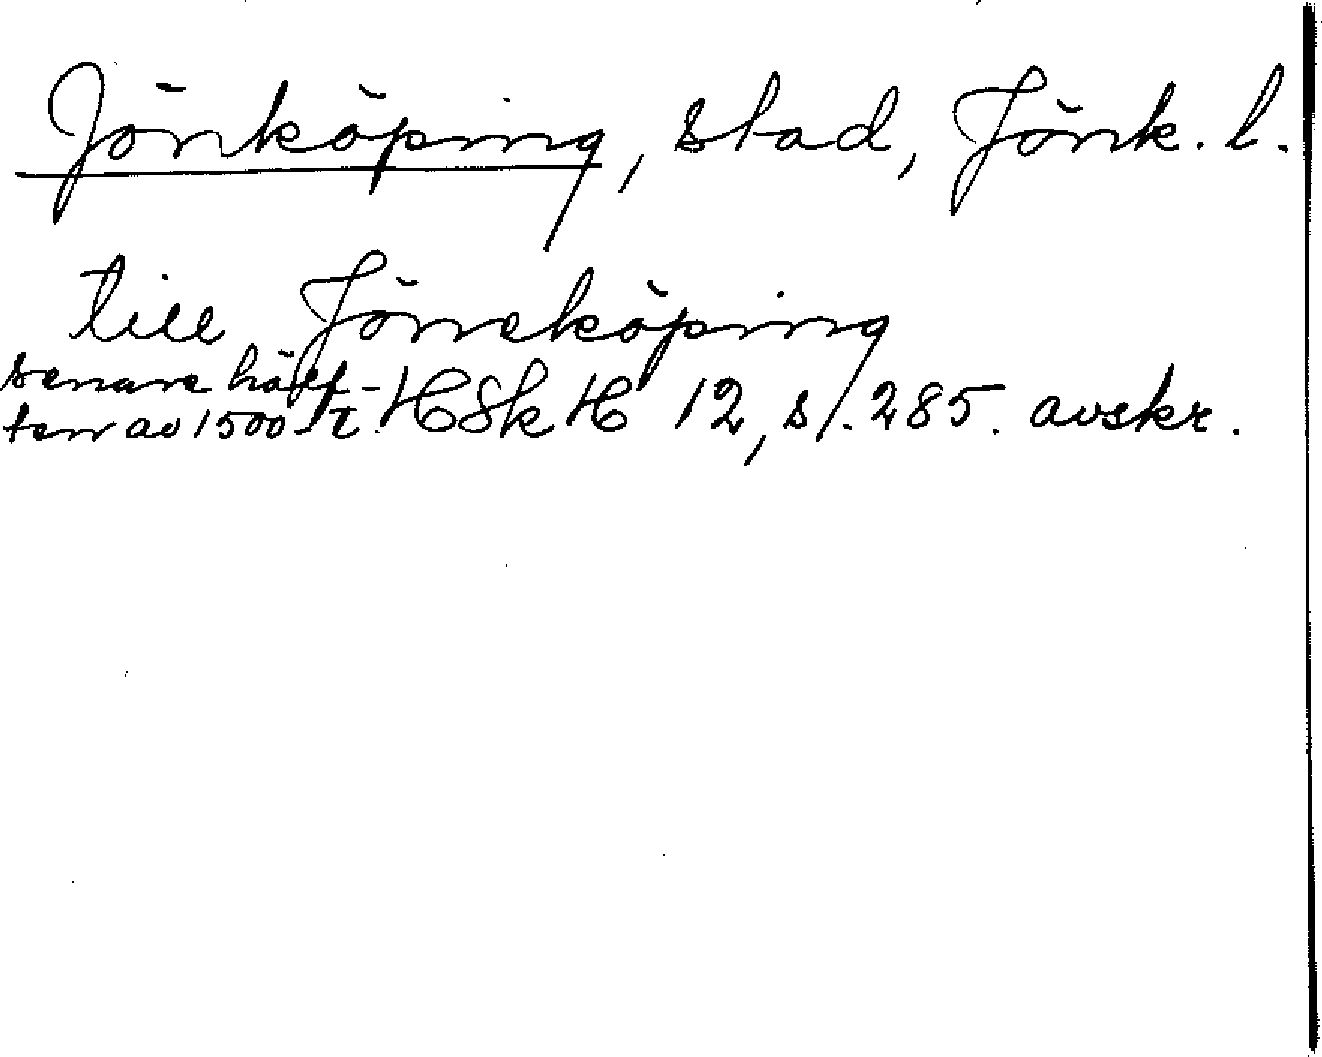 Jönköping, stad, Jönk. l.
till Jöneköping
senare hälf-
ten av 1500-t. HSkH 12, s. 285. avskr.